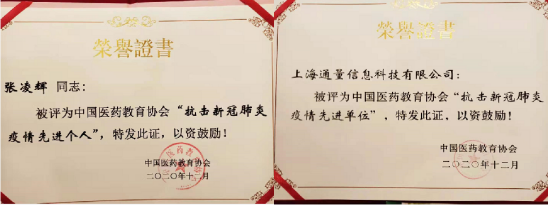 榮譽證書
张凌辉 同志：
被评为中国医药教育协会“抗击新冠肺炎
疫情先进个人”，特发此证，以资鼓励！
中国医药教育协会
二〇二〇年十二月
榮譽證書
上海通量信息科技有限公司：
被评为中国医药教育协会“抗击新冠肺炎
疫情先进单位”，特发此证，以资鼓励！
中国医药教育协会
二〇二〇年十二月